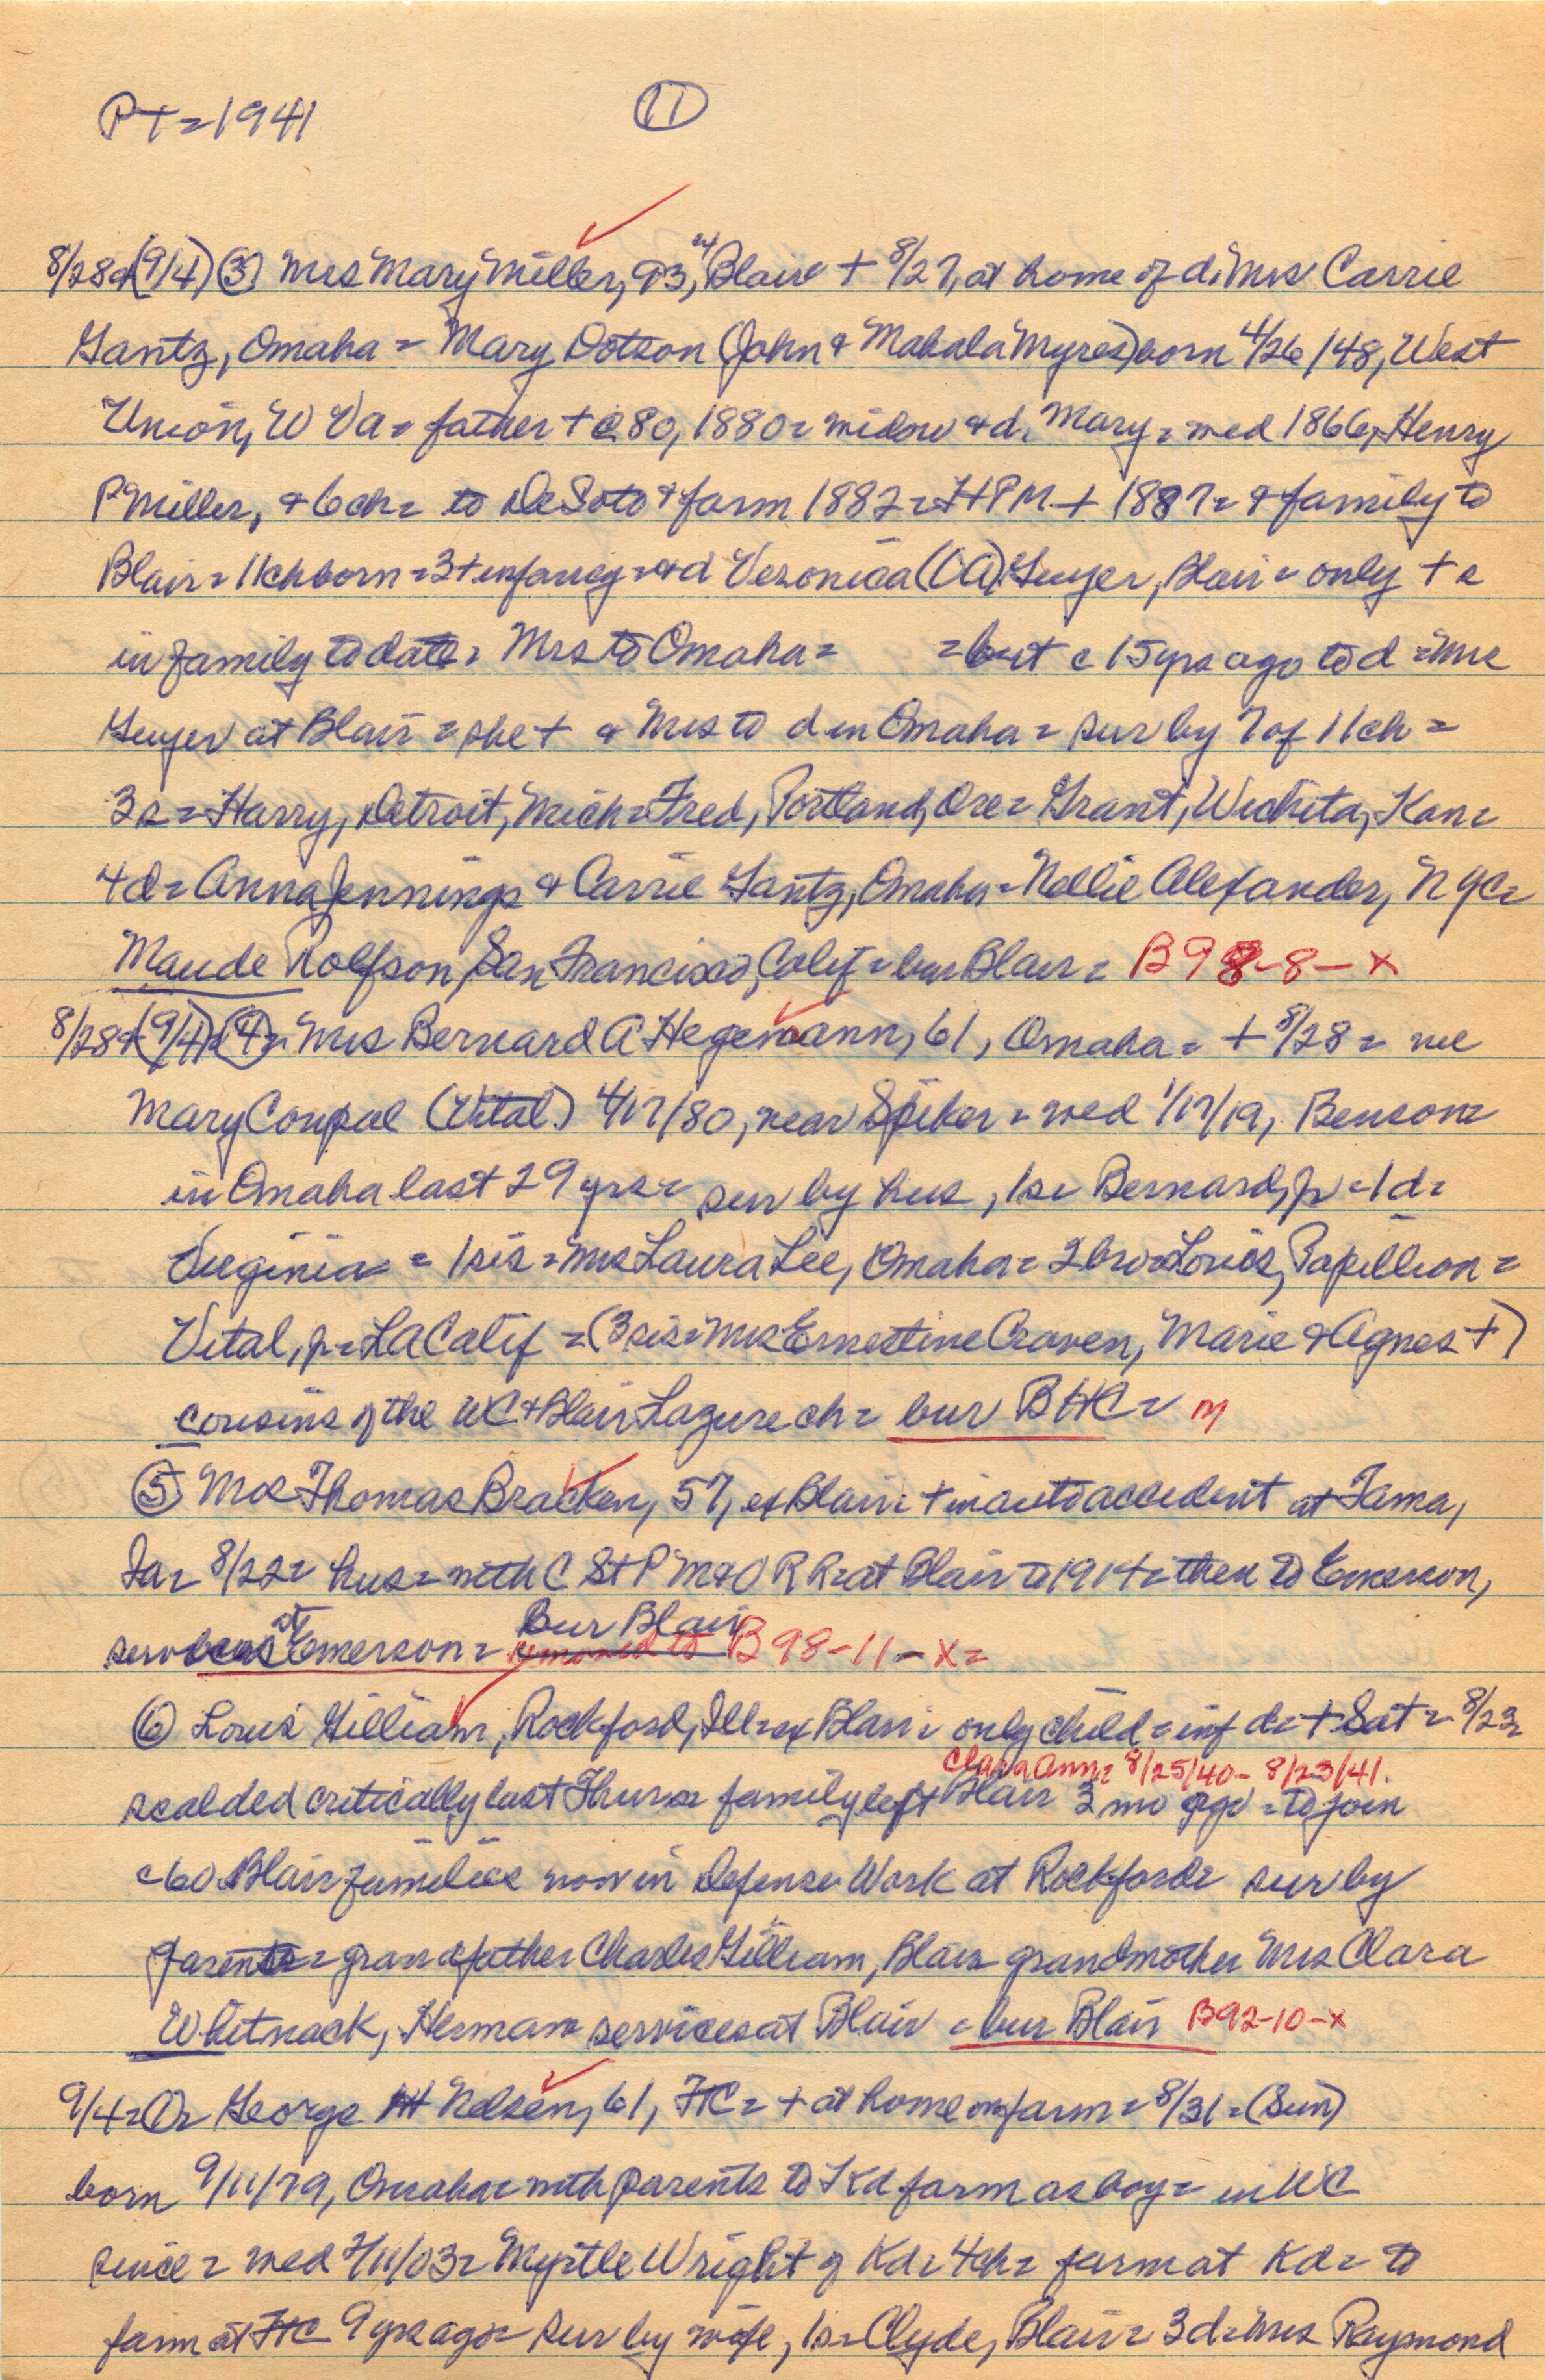 PT = 1941
11
8/28 & (9/4) (3) Mrs Mary Miller, 93, ex Blair + 8/27, at home of d. Mrs Carrie
Gantz, Omaha = Mary Dotson (John & Mahala Myres) born 4/26/48, West
Union, W Va = father + c 80, 1880 = widow & d. Mary = wed 1866, Henry
P Miller, & 6 ch = to DeSoto & farm 1882 = HPM + 1887 = & family to
Blair = 11 ch born = 3 + infancy = & d Veronica (CA) Guyer, Blair = only + s
in family to date = Mrs to Omaha = = but c 15 yrs ago to d = Mrs
Guyer at Blair = she + & Mrs to d in Omaha = sur by 7 of 11 ch =
3 s = Harry, Detroit, Mich = Fred, Portland, Ore = Grant, Wichita, Kan =
4 d = Anna Jennings & Carrie Gantz, Omaha = Nellie Alexander, NYC =
Maude Rolfson, San Francisco, Calif = bur Blair = B98-8-X
8/28 & (9/4) & (4) = Mrs Bernard A Hegemann, 61, Omaha = + 8/28 = nee
Mary Coupal (Vital) 4/17/80, near Spiker = wed 1/17/19, Benson =
in Omaha last 29 yrs = sur by hus, 1 s = Bernard, jr = 1 d =
Virginia = 1 sis = Mrs Laura Lee, Omaha = 2 bro = Louis, Papillion =
Vital, jr = LA Calif = (3 sis = Mrs Ernestine Craven, Marie & Agnes +)
cousins of the WC & Blair Lazure ch = bur BHC = M
(5) Mrs Thomas Bracken, 57, ex Blair = + in auto accident at Tama,
Ia = 8/22 = hus = with C St P M & O RR = at Blair to 1914 = then to Emerson,
services at Emerson = removed to Bur Blair B98-11-X =
(6) Louis Gilliam, Rockford, Ill = ex Blair = only child = inf d = + Sat = 8/23 =
Clara Ann = 8/25/40 - 8/23/41.
scalded critically last Thurs = family left Blair 3 mo ago = to join
c 60 Blair families now in Defense Work at Rockford = sur by
parents = grandfather Charles Gilliam, Blair = grandmother Mrs Clara
Whitnack, Herman = services at Blair = bur Blair B92-10-X
9/4 = (1) = George Nelsen, 61, FtC = + at home on farm = 8/31 = (Sun)
born 9/11/79, Omaha = with parents to Kd farm as boy = in WC
since = wed 2/11/03 = Myrtle Wright of Kd = 4 ch = farm at Kd = to
farm at FtC 9 yrs ago = sur by wife, 1 s = Clyde, Blair = 3 d = Mrs Raymond